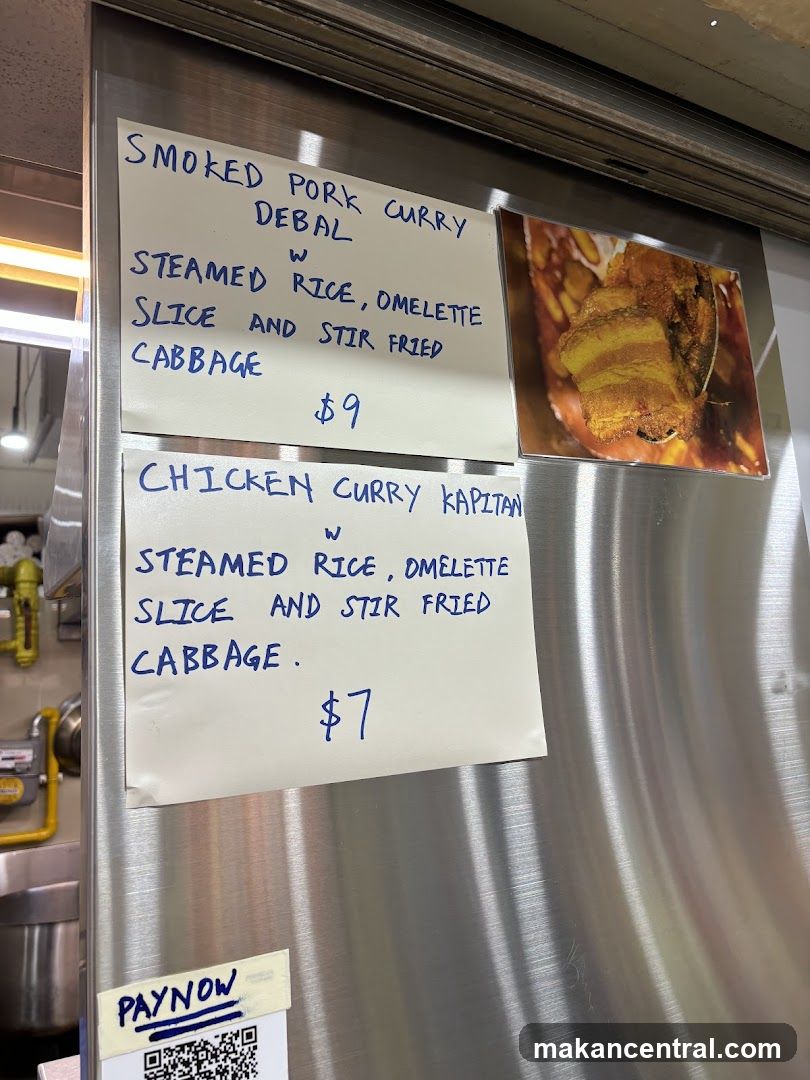 SMOKED PORK CURRY
DEBAL
W
STEAMED RICE, OMELETTE
SLICE AND STIR FRIED
CABBAGE
$9
CHICKEN CURRY KAPITAN
W
STEAMED RICE, OMELETTE
SLICE AND STIR FRIED
CABBAGE.
$7
PAYNOW
makancentral.com